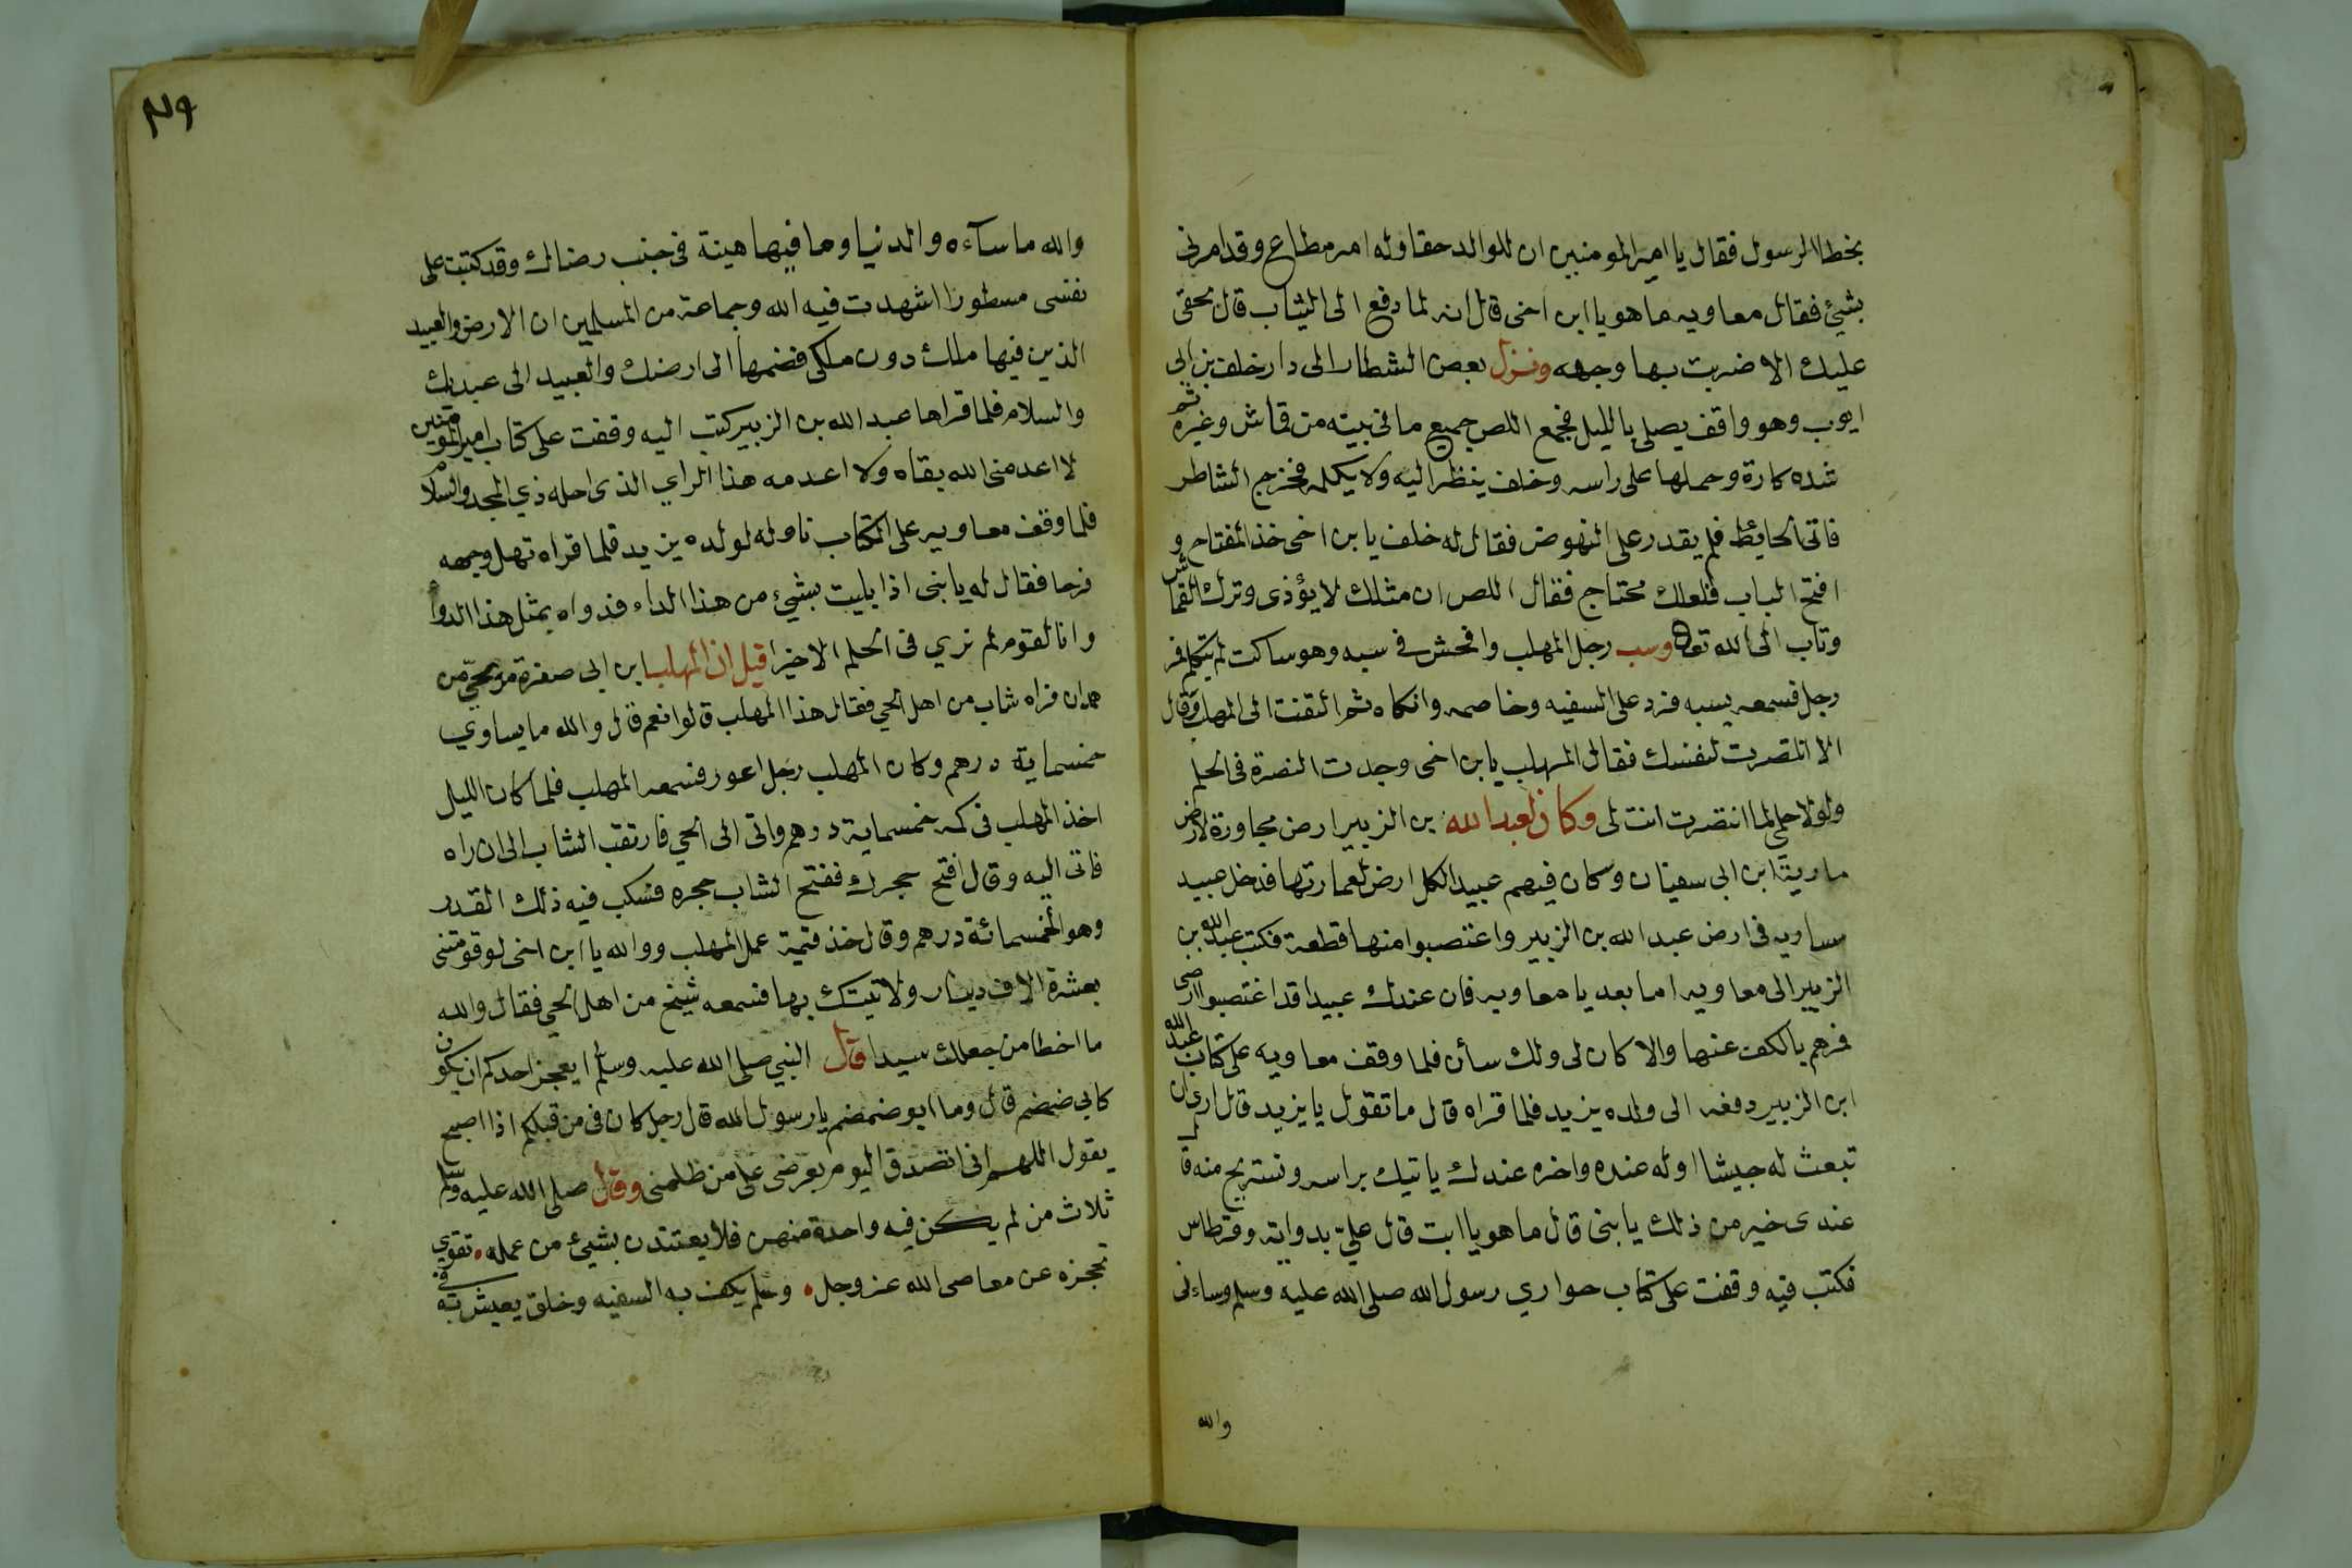 بخطا الرسول فقال يا امير المومنين ان للوالد حقا وله امر مطاع وقد امرنى
بشئ فقال معاويه ما هو يا ابن اخى قال انه لما دفع الى الثياب قال بحقى
عليك الا ضربت بها وجهه ونزل بعض الشطار الى دار خلف بن ابى
ايوب وهو واقف يصلى بالليل فجمع اللص جميع ما فى بيته من قماش وغيره ثم
شده كارة وحملها على راسه وخلف ينظر اليه ولا يكلمه فخرج الشاطر
فاتى الحايط فلم يقدر على النهوض فقال له خلف يا بن اخى خذ المفتاح و
افتح الباب فلعلك محتاج فقال اللص ان مثلك لا يؤذى وترك القماش
وتاب الى الله تعالى وسب رجل المهلب وافحش فى سبه وهو ساكت لم يتكلم فمر
رجل فسمعه يسبه فرد على السفيه وخاصمه وانكاه ثم التفت الى المهلب وقال
الا انتصرت لنفسك فقال المهلب يا بن اخى وجدت النصرة فى الحلم
ولولا حلمى لما انتصرت انت لى وكان لعبد الله بن الزبير ارض مجاورة لارض
ماوية ابن ابى سفيان وكان فيهم عبيد الكل ارض لعمارتها فدخل عبيد
معاويه فى ارض عبد الله بن الزبير واغتصبوا منها قطعة فكتب عبد الله بن
الزبير الى معاويه اما بعد يا معاويه فان عندك عبيدا قد اغتصبوا ارضى
فمرهم بالكف عنها والا كان لى ولك سأن فلما وقف معاويه على كتاب عبد الله
ابن الزبير دفعه الى ولده يزيد فلما قراه قال ما تقول يا يزيد قال ارى ان
تبعث له جيشا اوله عنده واخره عندك ياتيك براسه ونستريح منه قال
عندى خير من ذلك يا بنى قال ما هو يا ابت قال علىّ بدواية وقرطاس
فكتب فيه وقفت على كتاب حوارى رسول الله صلى الله عليه وسلم وساءنى
والله
٤٩
والله ما سآءه والدنيا وما فيها هينة فى جنب رضاك وقد كتبت على
نفسى مسطورا اشهدت فيه الله وجماعة من المسلمين ان الارض والعبيد
الذين فيها ملك دون ملكى فضمها الى ارضك والعبيد الى عبيدك
والسلام فلما قراها عبد الله بن الزبير كتب اليه وقفت على كتاب امير المومنين
لا اعدمنى الله بقاه ولا اعدمه هذا الراي الذى احله ذي المجد والسلام
فلما وقف معاويه على الكتاب ناوله لولده يزيد فلما قراه تهلل وجهه
فرحا فقال له يا بنى اذا بليت بشيئ من هذا الداء فدواه بمثل هذا الدوآ
وانا لقوم لم نري فى الحلم الا خيرا قيل ان المهلب ابن ابى صفرة مر بحىّ من
همدان فراه شاب من اهل الحي فقال هذا المهلب قالوا نعم قال والله ما يساوي
خمسماية درهم وكان المهلب رجل اعور فسمعه المهلب فلما كان الليل
اخذ المهلب فى كمه خمسماية درهم واتى الى الحي فارتقب الشاب الى ان راه
فاتى اليه وقال افتح حجرك ففتح الشاب حجره فسكب فيه ذلك القدر
وهو الخمسمائة درهم وقال خذ قيمة عمل المهلب ووالله يا ابن اخى لو قومتنى
بعشرة الاف دينار ولاتيتك بها فسمعه شيخ من اهل الحي فقال والله
ما اخطا من جعلك سيدا قال النبي صلى الله عليه وسلم ايعجز احدكم ان يكون
كابى ضمضم قال وما ابو ضمضم يا رسول الله قال رجل كان فى من قبلكم اذا اصبح
يقول اللهم انى اتصدق اليوم بعرضى على من ظلمنى وقال صلى الله عليه وسلم
ثلاث من لم يكن فيه واحدة منهن فلا يعتدن بشيئ من عمله تقوي
تحجزه عن معاصى الله عز وجل وحلم يكف به السفيه وخلق يعيش به فى